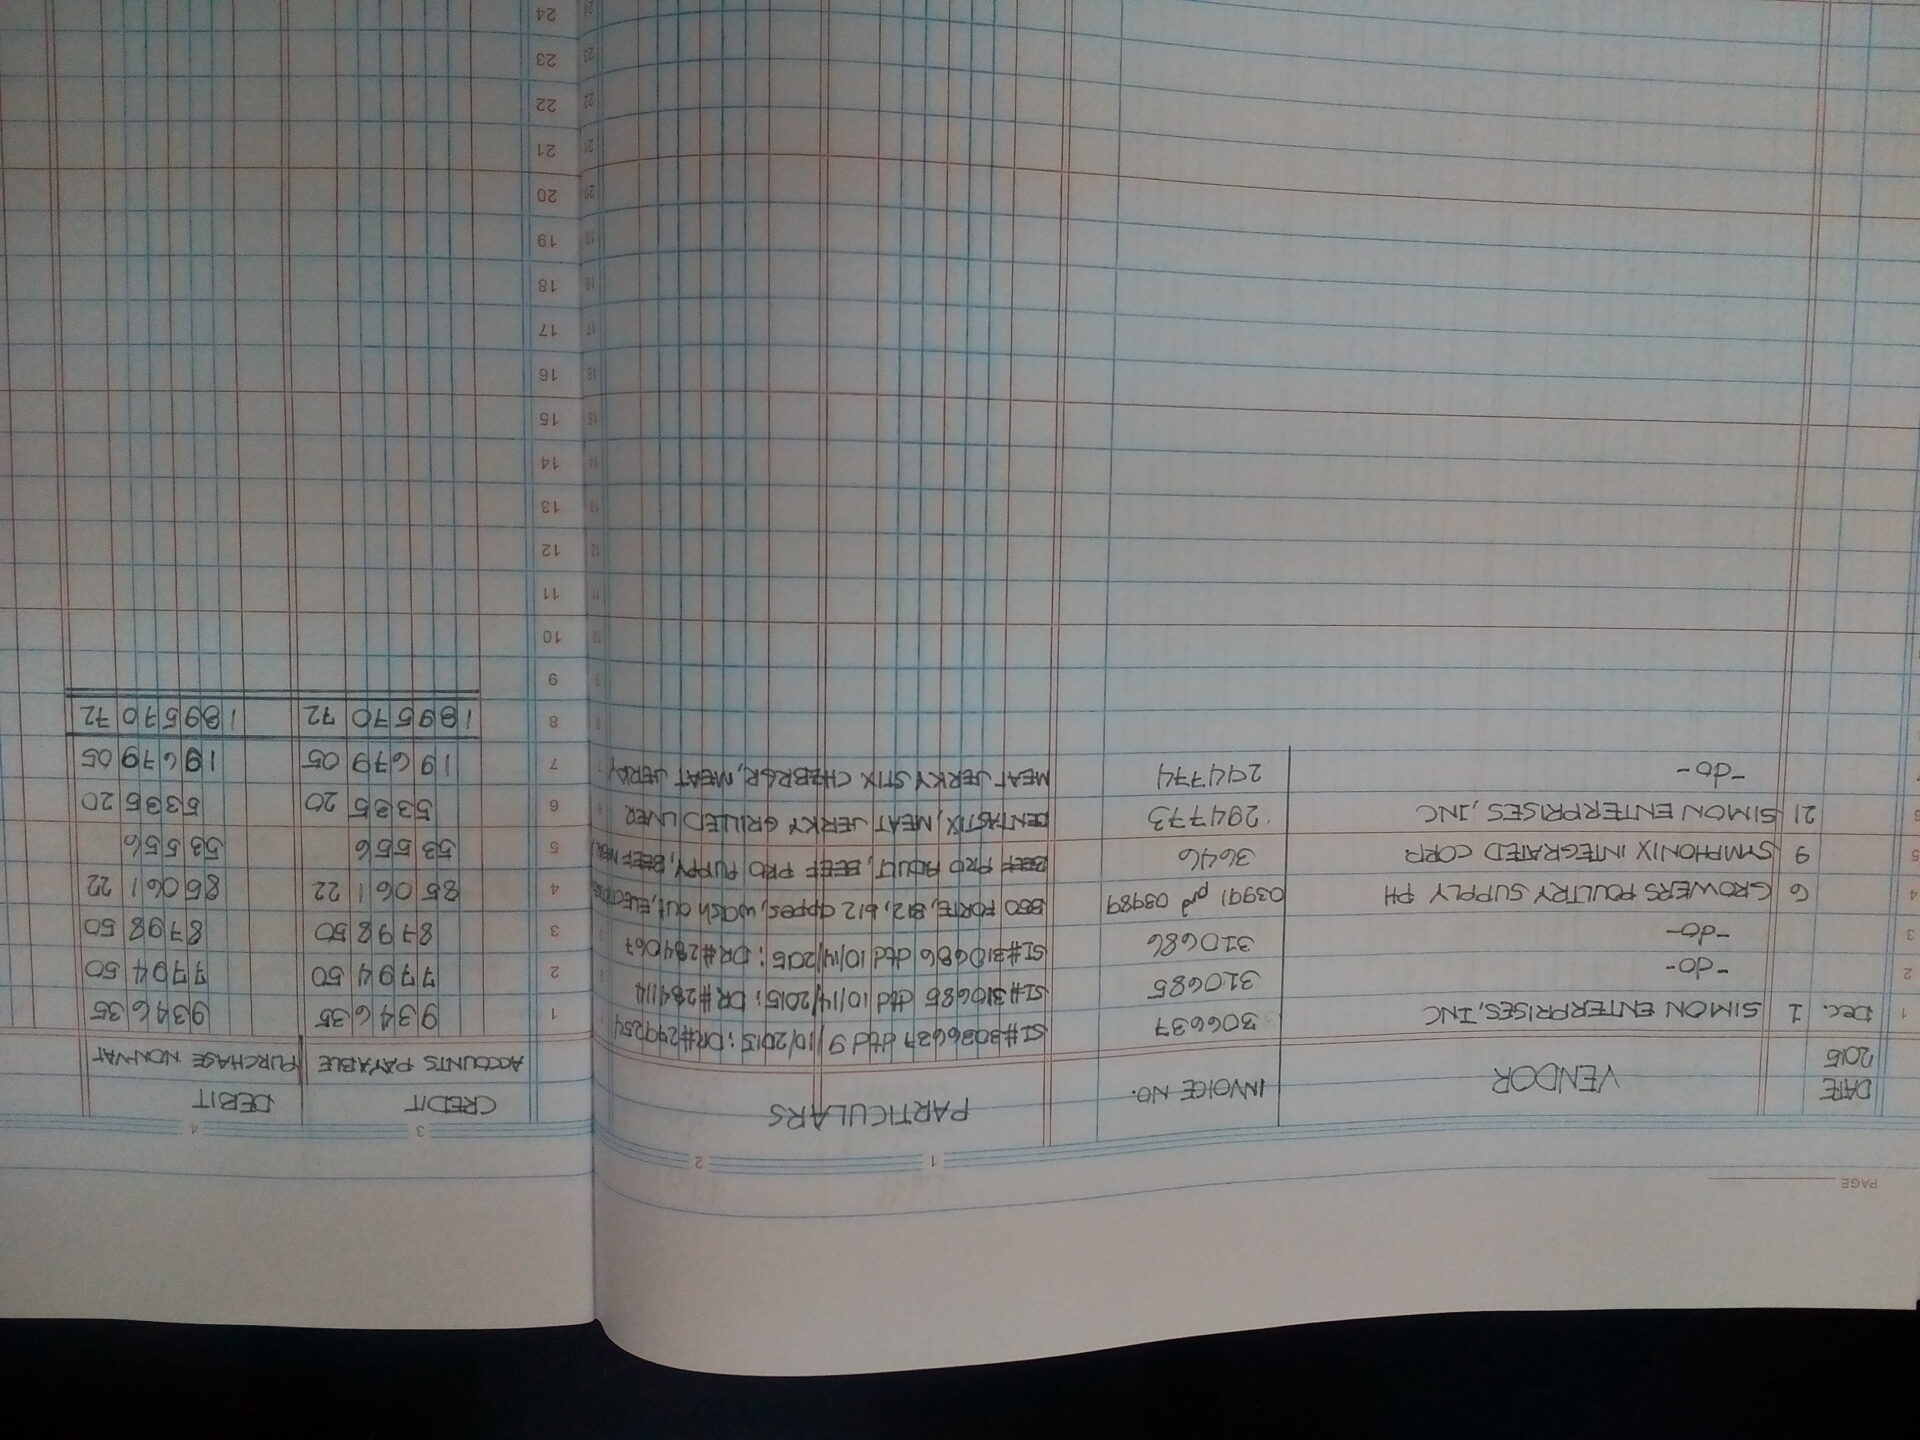 PAGE
1 2 3 4
DATE VENDOR INVOICE NO. PARTICULARS CREDIT DEBIT
2015 ACCOUNTS PAYABLE PURCHASE NON-VAT
1 Dec. 1 SIMON ENTERPRISES, INC 306637 SI#3026637 dtd 9/10/2015; DR#279254 1 9346 35 9346 35
2 -do- 310685 SI#310685 dtd 10/14/2015; DR#284114 2 7794 50 7794 50
3 -do- 310686 SI#310686 dtd 10/14/2015; DR#284067 3 8798 50 8798 50
4 6 GROWERS POULTRY SUPPLY PH 03991 and 03989 FORTE, B12, b12 appes, wash out, 4 85061 22 85061 22
5 9 SYMPHONIX INTEGRATED CORP 3646 BEEF PRO ADULT, BEEF PRO PUPPY, BEEF 5 53556 53556
6 21 SIMON ENTERPRISES, INC 294773 DENTASTIX, MEAT JERKY GRILLED LIVER 6 5335 20 5335 20
7 -do- 294774 MEAT JERKY STIX CHZBRGR, MEAT JERKY 7 19679 05 19679 05
8 189570 72 189570 72
9
10
11
12
13
14
15
16
17
18
19
20
21
22
23
24